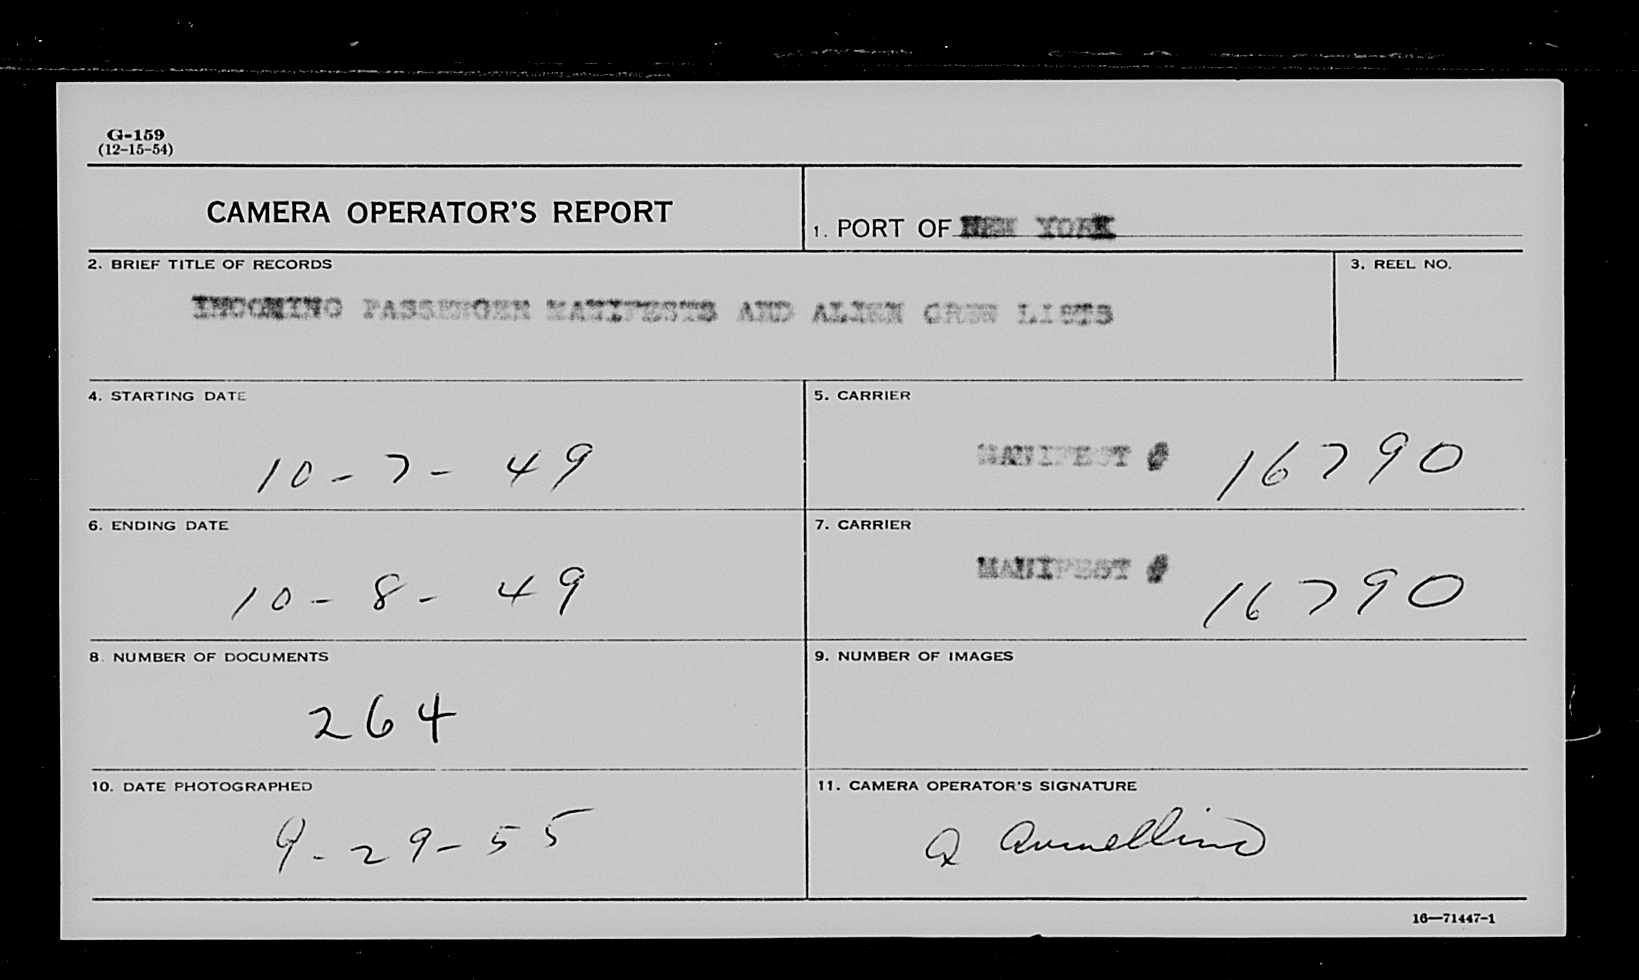 G-159
(12-15-54)
CAMERA OPERATOR'S REPORT
1. PORT OF NEW YORK
2. BRIEF TITLE OF RECORDS
3. REEL NO.
INCOMING PASSENGER MANIFESTS AND ALIEN CREW LISTS
4. STARTING DATE
5. CARRIER
10-7-49
MANIFEST # 16790
6. ENDING DATE
7. CARRIER
10-8-49
MANIFEST # 16790
8. NUMBER OF DOCUMENTS
9. NUMBER OF IMAGES
264
10. DATE PHOTOGRAPHED
11. CAMERA OPERATOR'S SIGNATURE
9-29-55
16—71447-1